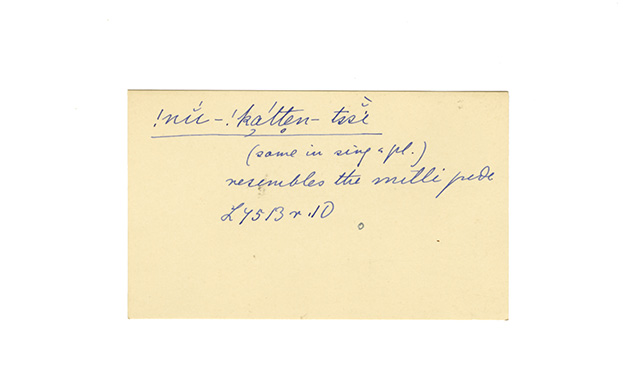 !nŭí-!kạ́tten-tssĕ́
(same in sing & pl.)
resembles the milli pede
L45B r.10